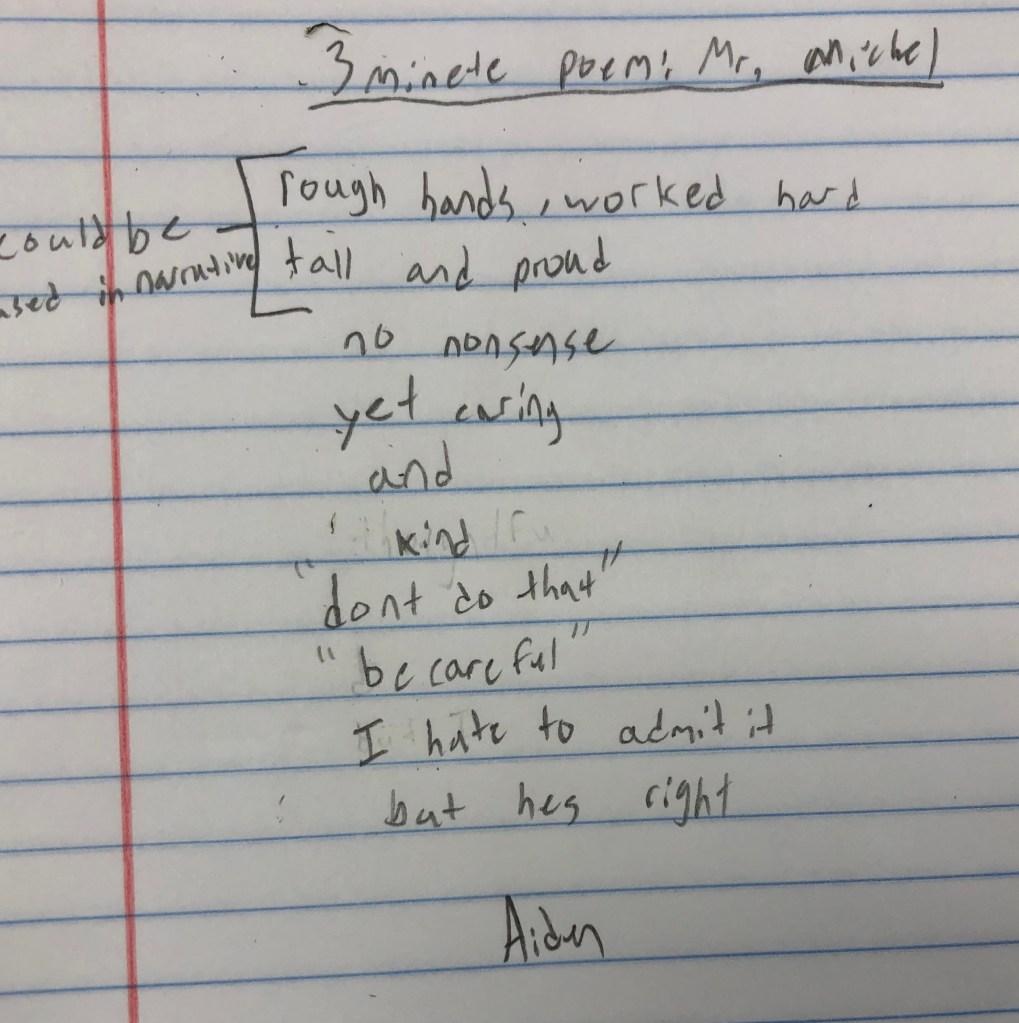 3 minete poem: Mr. Michel
could be
used in narrative
rough hands, worked hard
tall and proud
no nonsense
yet caring
and
kind
"dont do that"
"be careful"
I hate to admit it
but hes right
Aiden